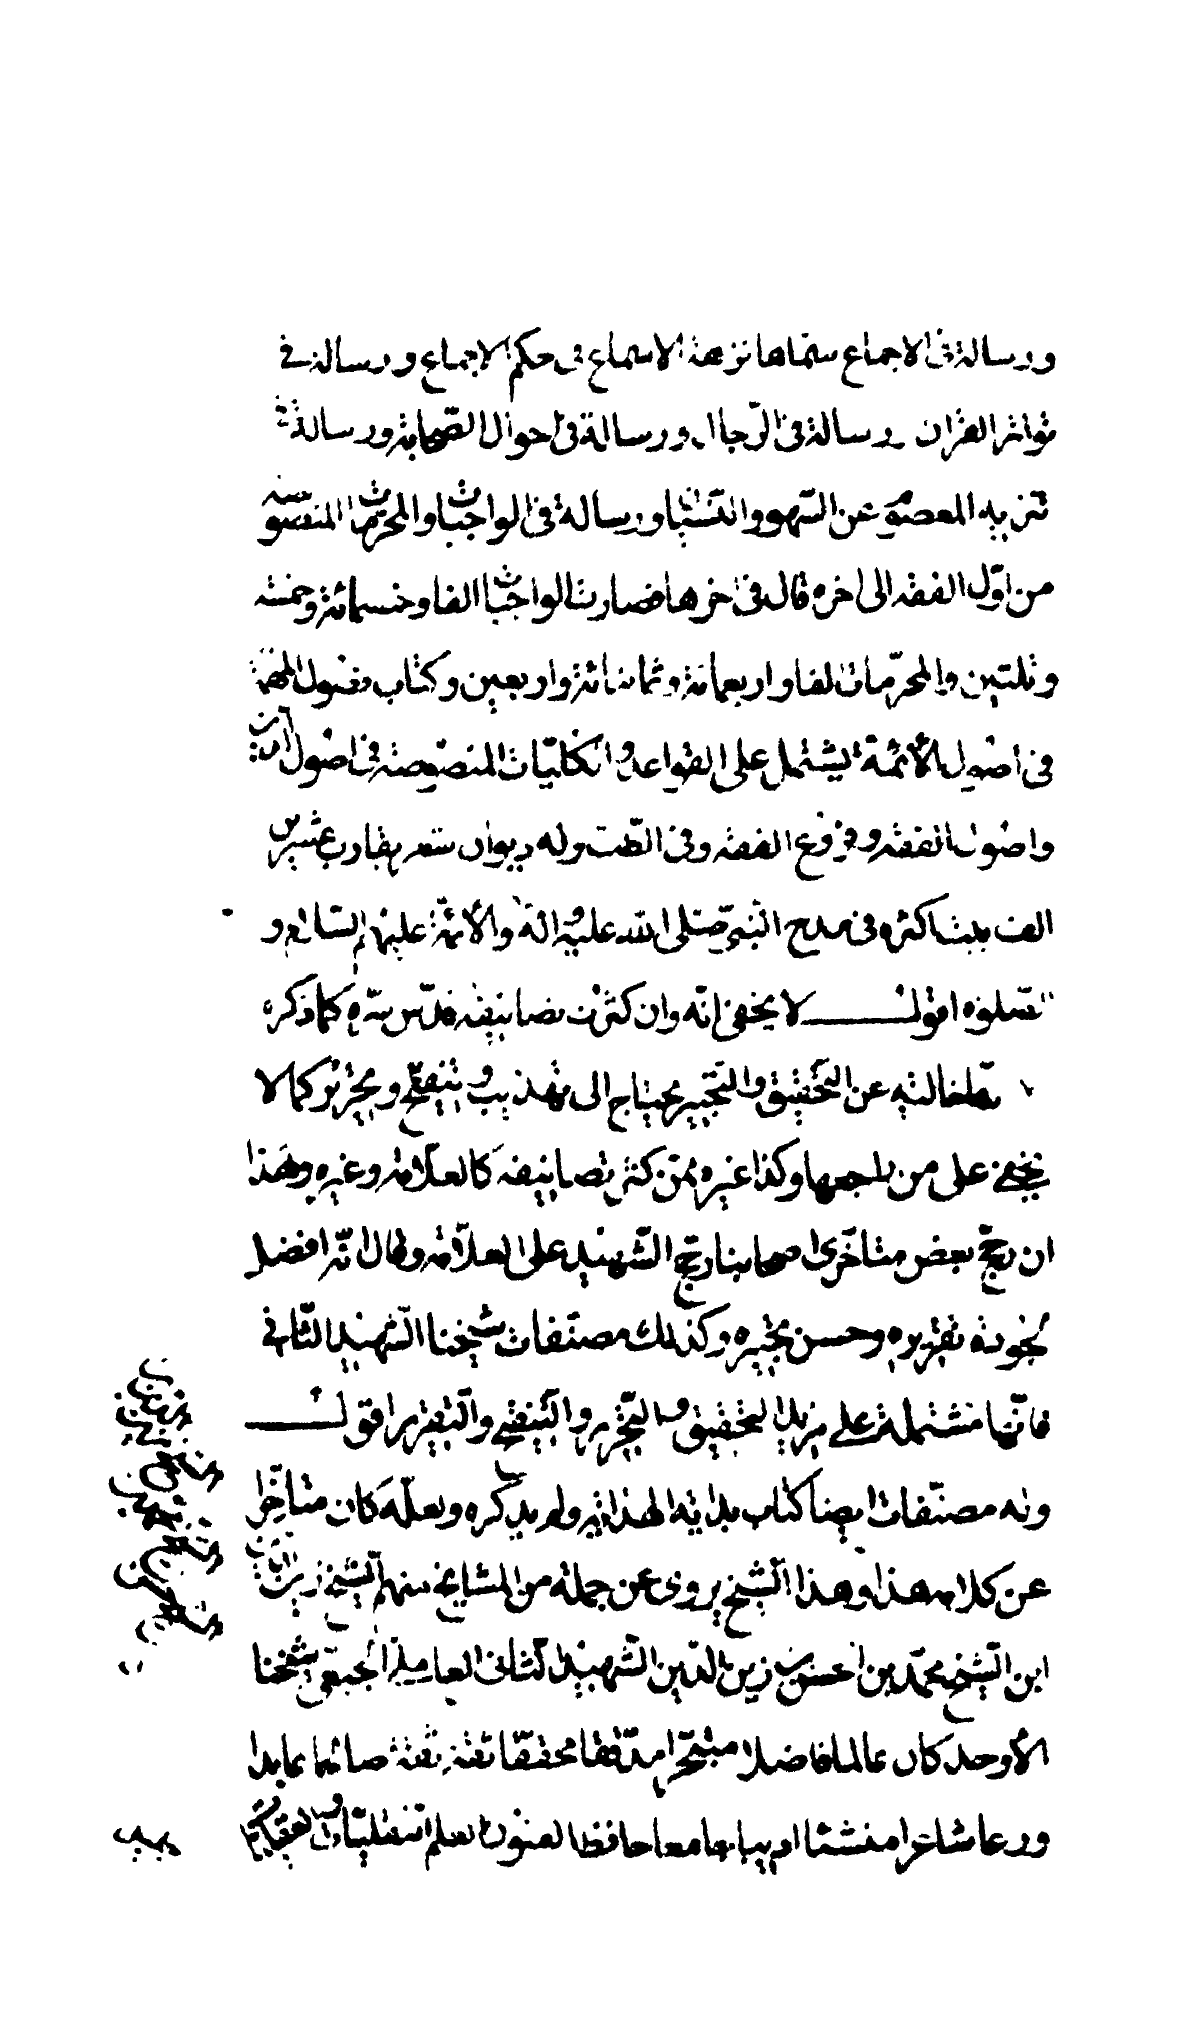 ورسالة فى الاجماع سمّاها نزهة الاسماع فى حكم الاجماع ورسالة فى
تواتر القران ورسالة فى الرّجال ورسالة فى احوال الصّحابة ورسالة فى
تنزيه المعصوم عن السّهو والنّسيان ورسالة فى الواجبات والمحرّمات المنصوصة
من اوّل الفقه الى اخره قال فى اخرها فصارت الواجبات الفا وخمسمائة وخمسة
وثلثين والمحرّمات الفا واربعمائة وثمانمائة واربعين وكتاب فصول المهمّة
فى اصول الأئمّة يشتمل على القواعد والكليّات المنصوصة فى اصول الدين
واصول الفقه وفى فروع الفقه وفى الطّب وله ديوان شعر يقارب عشرين
الف بيت اكثره فى مدح النّبى صلّى الله عليه واله والأئمّة عليهم السّلام و
اقول لا يخفى انّه وان كثرت تصانيفه قدّس سرّه كما ذكره
خالية عن التّحقيق والتّحبير يحتاج الى تهذيب وتنقيح وتحرير كما لا
يخفى على من راجعها وكذا غيره ممّن كثر تصانيفه كالعلّامة وغيره ولهذا
ان رجّح بعض متأخّرى اصحابنا رجّح الشّهيد على العلّامة وقال انّه افضل
لجودة تقريره وحسن تحبيره وكذلك مصنّفات شيخنا الشّهيد الثّانى
فانّها مشتملة على مزيد التحقيق والتّحرير والتّنقيح والتّقرير اقول
وله مصنّفات ايضا كتاب بداية الهداية ولم يذكره ولعلّه كان متأخّرا
عن كلامه هذا وهذا الشّيخ يروى عن جملة من المشايخ منهم الشّيخ زين الدين
ابن الشّيخ محمّد بن الحسن بن زين الدّين الشّهيد الثّانى العاملىّ الجبعىّ شيخنا
الأوحد كان عالما فاضلا متبحّرا مدقّقا محقّقا ثقة ثقة صائما عابدا
ورعا شاعرا منشئا اديبا جامعا حافظا لفنون العلم النقليّات والعقليّات